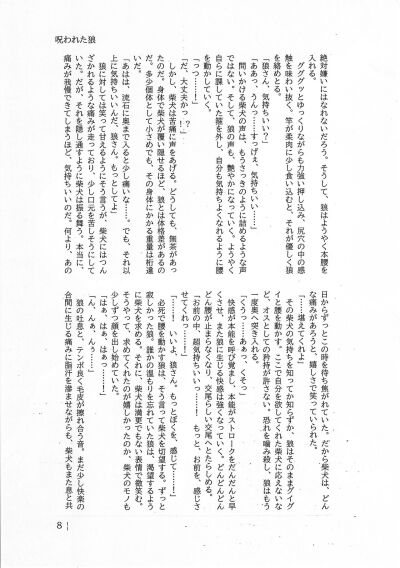 呪われた狼
絶対嫌いにはなれないだろう。そうして、狼はようやく本腰を
入れる。
　グググッとゆっくりながらも力強い押し込み、尻穴の中の感
触を味わい抜く、竿が柔肉に少し食い込むと、それが優しく狼
を絡めとる。
「狼さん、気持ちいい？」
「ああっ、うんっ……すっげえ、気持ちいい……」
　問いかける柴犬の声は、もうさっきのように詰めるような声
ではない。そして、狼の声も、艶やかになっていく。ようやく
自らに課していた箍を外し、自分も気持ちよくなれるように腰
を動かしていく。
「っつ……！」
「だ、大丈夫かっ？」
　しかし、柴犬は苦痛に声をあげる。どうしても、無茶があっ
たのだ。身体で柴犬が覆い隠せるほど、狼とは体格差があるの
だ。多少個体として小さめでも、その身体にかかる重量は桁違
いだ。
「あはは、流石に奥まで入ると少し痛いな……。でも、それ以
上に気持ちいいんだ、狼さん。もっとしてよ」
　狼に対しては笑って廿えるようにそう言うが、柴犬にはつん
ざかれるような痛みが走っており、少し口元を苦しそうにして
いた。だが、それを隠し通すように柴犬は振る舞う。本当に、
痛みが我慢できてしまうほど、気持ちいいのだ。何より、あの
日からずっとこの時を待ち焦がれていた。だから柴犬は、どん
な痛みがあろうと、嬉しさで笑っていられた。
「……堪えてくれよ」
　その柴犬の気持ちを知ってか知らずか、狼はそのままグイグ
イと腰を動かす。ここで自分を欲してくれた柴犬に応えないな
ど、オスとしての矜持が許さない。恐れを噛み殺し、狼はもう
一度奥へ突き入れる。
「くうっ……あぁっ、くそっ」
　快感が本能を呼び覚まし、本能がストロークをだんだんと早
くさせ、また狼に生じる快感は強くなっていく。どんどんどん
どん腰が止まらなくなり、交尾らしい交尾へとたらしめる。
「お前の中、超気持ちいいっ……！　もっと、お前を、感じさ
せてくれっ……！」
「……！　いいよ、狼さん、もっとぼくを、感じて……！」
　必死で腰を動かす狼は、そう言って柴犬を切望する。ずっと
寂しかった狼。誰かの温もりを忘れていた狼は、渇望するよう
に柴犬を求める。それに、柴犬は満更でもない表情で微笑む。
そうやって、求めてくれたのが嬉しかったのか、柴犬のモノも
少しずつ顔を出し始めていた。
「はぁ、はぁ、はぁっ……！」
「ん、んぁ、んぅ……」
　狼の吐息と、テンポ良く毛皮が擦れ合う音。まだ少し快楽の
合間に生じる痛みに脂汗を滲ませながらも、柴犬もまた息と共
8